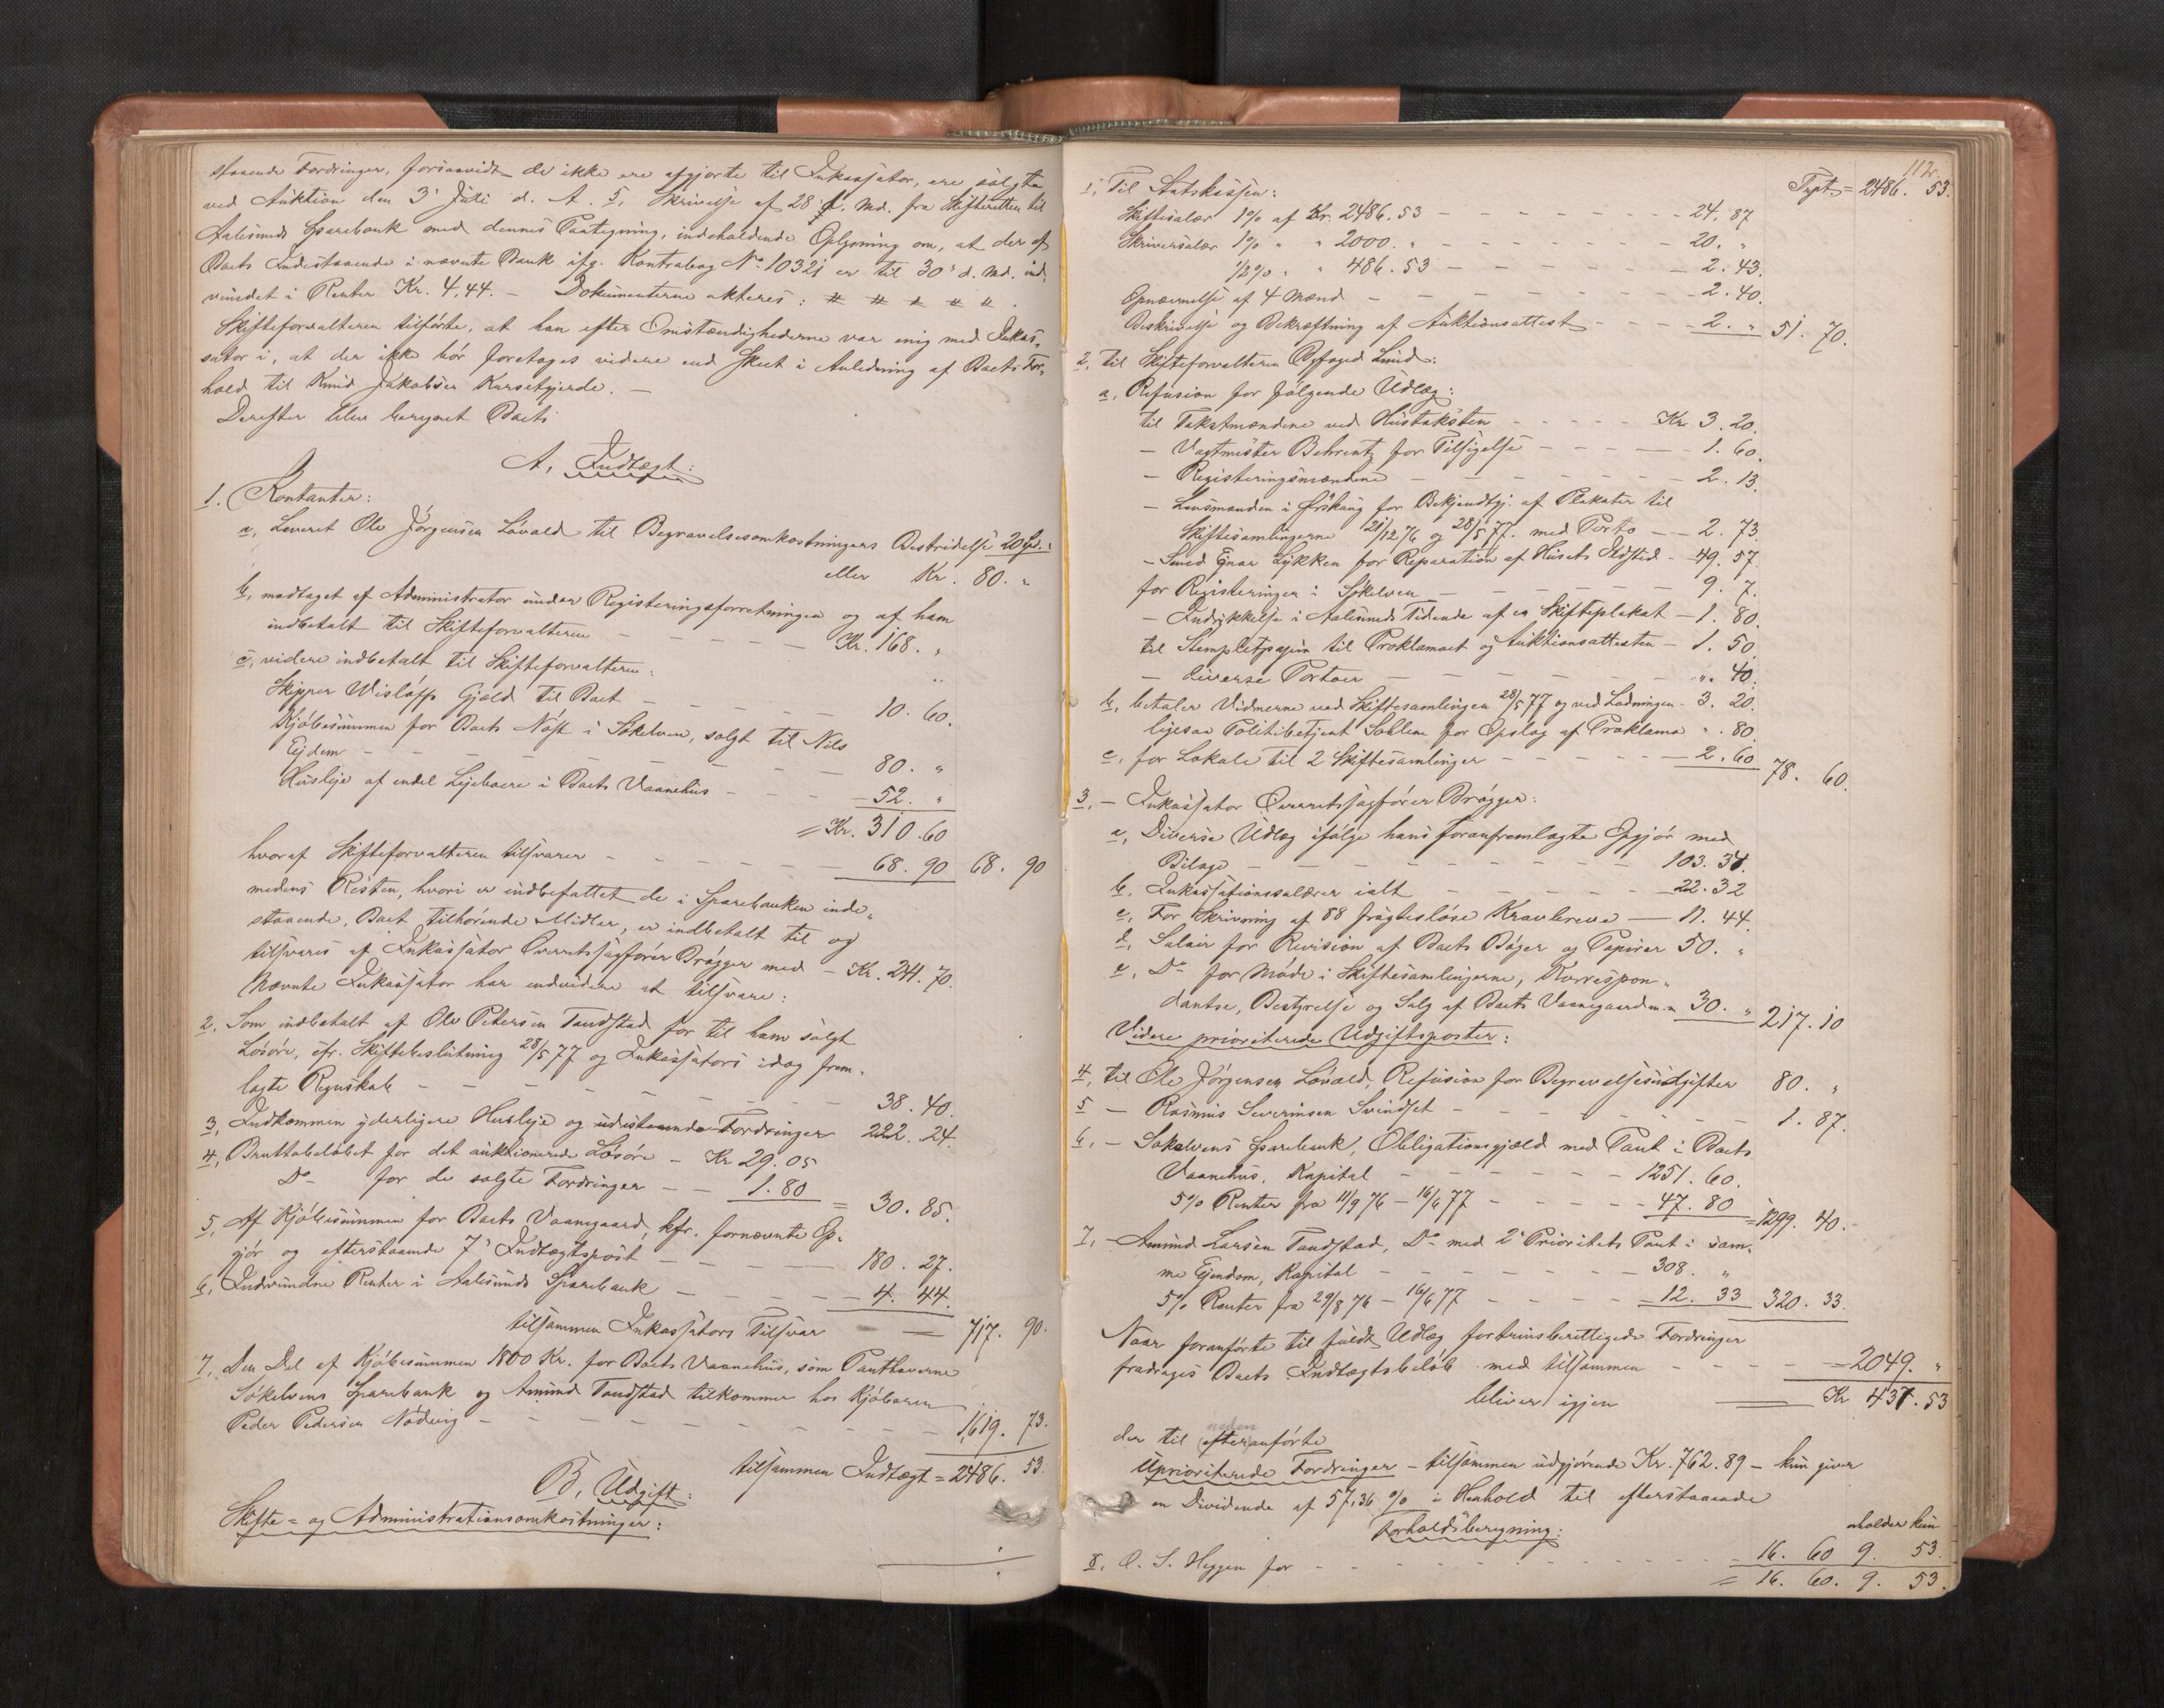 staaende Fordringer, forsaavidt de ikke ere afgjorte til Inkassator, ere solgte
ved Auktion den 3' Juli d. A. 5, Skrivelse af 28' f. Md. fra Skifteretten til
Aalesunds Sparebank med dennes Paategning, indeholdende Oplysning om, at der af
Boets Indestaaende i nævnte Bank ifg. Kontrabog No. 10321 er til 30' d. Md. ind,
vundet i Renter Kr. 4,44. — Dokumenterne akteres:
Skifteforvalteren tilførte, at han efter Omstændighederne var enig med Inkas,
sator i, at der ikke bør foretages videre end skeet i Anledning af Boets For,
hold til Knud Jakobsen Kursetgjerde. —
Derefter blev beregnet Boets
A, Indtægt:
1. Kontanter:
a, Leveret Ole Jørgensen Løvold til Begravelsesomkostningers Bestridelse 20 Spd.
eller Kr. 80. „
b, modtaget af Administrator under Registeringsforretningen og af ham
indbetalt til Skifteforvalteren — Kr. 168. „
c, videre indbetalt til Skifteforvalteren:
Skipper Wisløffs Gjæld til Boet — 10. 60.
Kjøbesummen for Boets Nøst i Søkelven, solgt til Nils
Ejdem — 80. „
Husleje af endel Lejeboere i Boets Vaanehus — 52. „
= Kr. 310. 60
hvoraf Skifteforvalteren tilsvarer — 68. 90 68. 90
medens Resten, hvori er indbefattet de i Sparebanken inde„
staaende, Boet tilhørende Midler, er indbetalt til og
tilsvares af Inkassator Overretssagfører Brøgger med — Kr. 241. 70.
Nævnte Inkassator har endvidere at tilsvare:
2. Som indbetalt af Ole Petersen Tandstad for til ham solgt
Løsøre, cfr. Skiftebeslutning 28/5 77 og Inkassators idag frem„
lagte Regnskab — 38. 40.
3, Indkommen yderligere Husleje og udestaaende Fordringer 222. 24.
4, Bruttobeløbet for det auktionerede Løsøre — Kr 29. 05
Do for de solgte Fordringer — 1. 80 = 30. 85.
5, Af Kjøbesummen for Boets Vaanegaard, kfr. fornævnte Op„
gjør og efterstaaende 7' Indtægtspost — 180. 27.
6, Indvundne Renter i Aalesunds Sparebank — 4. 44.
tilsammen Inkassators Tilsvar = 717. 90.
7, Den Del af Kjøbesummen 1800 Kr. for Boets Vaanehus, som Panthaverne
Søkelvens Sparebank og Amund Tandstad tilkommer hos Kjøberen
Peder Pedersen Nødvig — 1,619. 73.
tilsammen Indtægt = 2486. 53.
B, Udgift:
Skifte- og Administrationsomkostninger:
112.
Trpt. = 2486. 53.
1, Til Statskassen:
Skiftesalær 1% af Kr. 2486. 53 — 24. 87
Skriversalær 1% „ „ 2000. „ — 20. „
1/2% „ „ 486. 53 — 2. 43.
Opnævnelse af 4 Mænd — 2. 40.
Beskrivelse og Bekræftning af Auktionsattest — 2. „ 51. 70.
2, til Skifteforvalteren Byfoged Lund:
a, Refusion for følgende Udlæg:
til Takstmændene ved Hustaksten — Kr 3. 20.
— Vagtmester Behrentz for Tilsigelse — 1. 60.
— Registeringsmændene — 2. 13.
— Lensmanden i Ørskaug for Bekjendtgj. af Plakater til
Skiftesamlingerne 21/12 76 og 28/5 77. med Porto — 2. 73.
— Smed Ejnar Lykken for Reparation af Husets Ildsted — 49. 57.
for Registeringen i Søkelven — 9. 7.
— Indrykkelse i Aalesunds Tidende af en Skifteplakat — 1. 80.
til Stempletpapir til Proklamaet og Auktionsattesten — 1. 50.
— diverse Portoer — „. 40.
b, betaler Vidnerne ved Skiftesamlingen 28/5 77 og ved Lodningen — 3. 20.
ligesaa Politibetjent Sahlen for Opslag af Proklama „. 80.
c, for Lokale til 2 Skiftesamlinger — 2. 60 78. 60.
3, — Inkassator Overretssagfører Brøgger:
a, Diverse Udlæg ifølge hans foranfremlagte Opgjør med
Bilage — 103. 34.
b, Inkassationssalærer ialt — 22. 32
c, For Skrivning af 88 frugtesløse Kravbreve — 11. 44.
d, Salair for Revision af Boets Bøger og Papirer 50. „
e, Do for Møde i Skiftesamlingerne, Korrespon„
dantse, Bestyrelse og Salg af Boets Vaanegaard m.m. 30. „ 217. 10
Videre prioriterede Udgiftsposter:
4, til Ole Jørgensen Løvold, Refusion for Begravelsesudgifter 80. „
5 — Rasmus Severinsen Svindset — 1. 87.
6, — Søkelvens Sparebank, Obligationsgjæld med Pant i Boets
Vaanehus, Kapital — 1251. 60.
5% Renter fra 11/9 76 — 16/6 77 — 47. 80 = 1299. 40.
7, — Amund Larsen Tandstad, Do med 2' Prioritets Pant i sam„
me Ejendom, Kapital — 308. „
5% Renter fra 29/8 76 — 16/6 77 — 12. 33 320. 33.
Naar foranførte til fuldt Udlæg fortrinsberettigede Fordringer
fradrages Boets Indtægtsbeløb med tilsammen — = 2049. „
bliver igjen = Kr 437. 53
neden
der til efteranførte
Uprioriterede Fordringer — tilsammen udgjørende Kr. 762. 89 — kun giver
en Dividende af 57,36 % i Henhold til efterstaaende
Forholdsberegning:
erholder kun
8, O. S. Heggen for — 16. 60 9. 53.
= 16. 60. 9. 53.